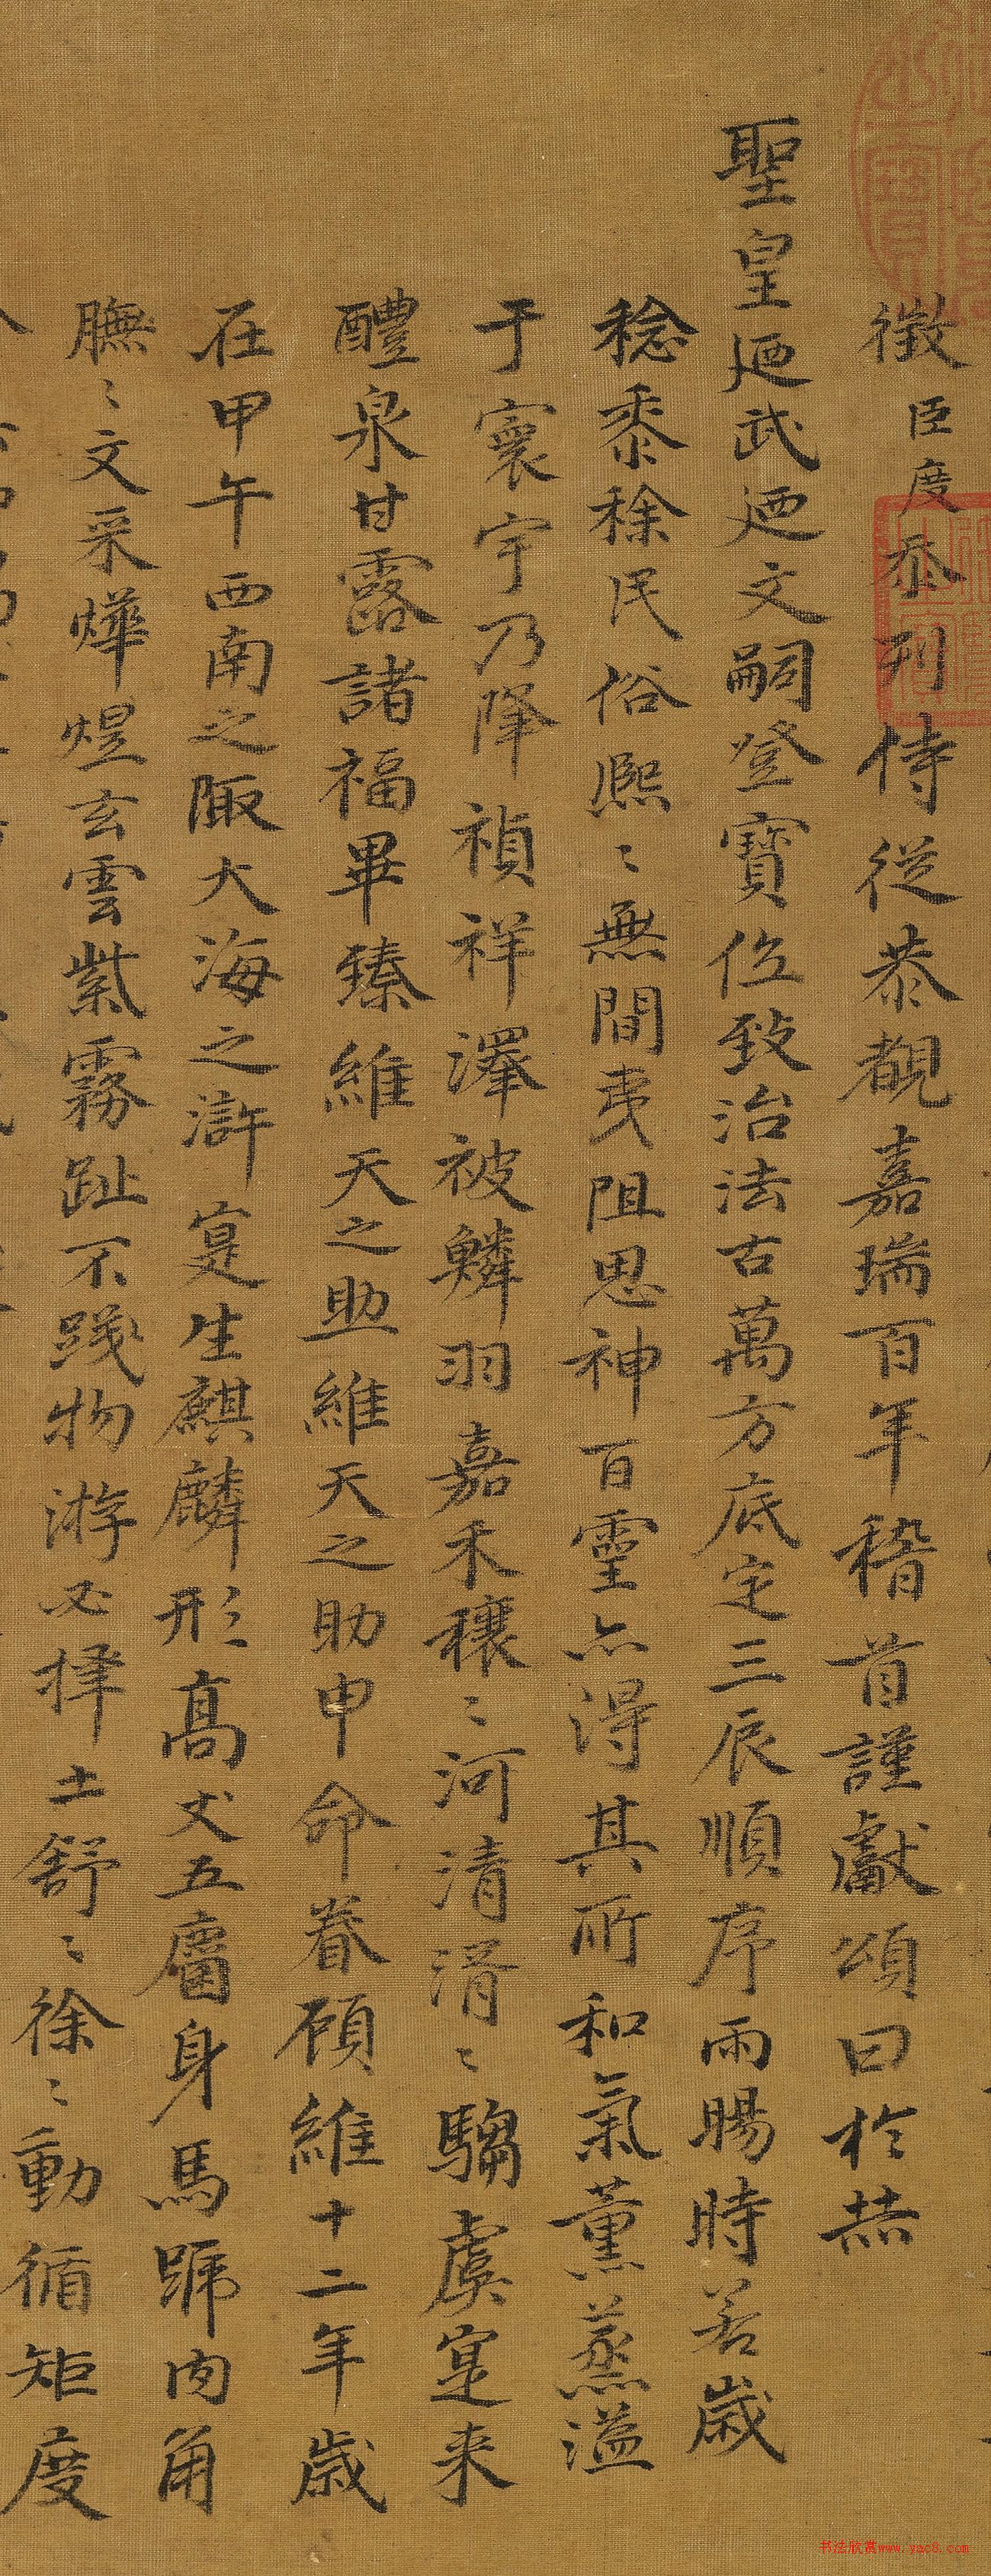 徵臣度忝列侍從恭覩嘉瑞百年稽首謹獻頌曰於赫
聖皇廼武廼文嗣登寶位致治法古萬方底定三辰順序雨暘時若歲
稔黍稌民俗熈〻無間夷阻思神百靈亦得其所和氣薰蒸溢
于寰宇乃降禎祥澤被鱗羽嘉禾穰〻河清湑〻騶虞寔来
醴泉甘露諸福畢臻維天之助維天之助申命眷顧維十二年歲
在甲午西南之陬大海之滸寔生麒麟形高丈五麕身馬蹏肉角
膴〻文采燁煜玄雲紫霧趾不踐物游必擇土舒〻徐〻動循矩度
书法欣赏www.yac8.com